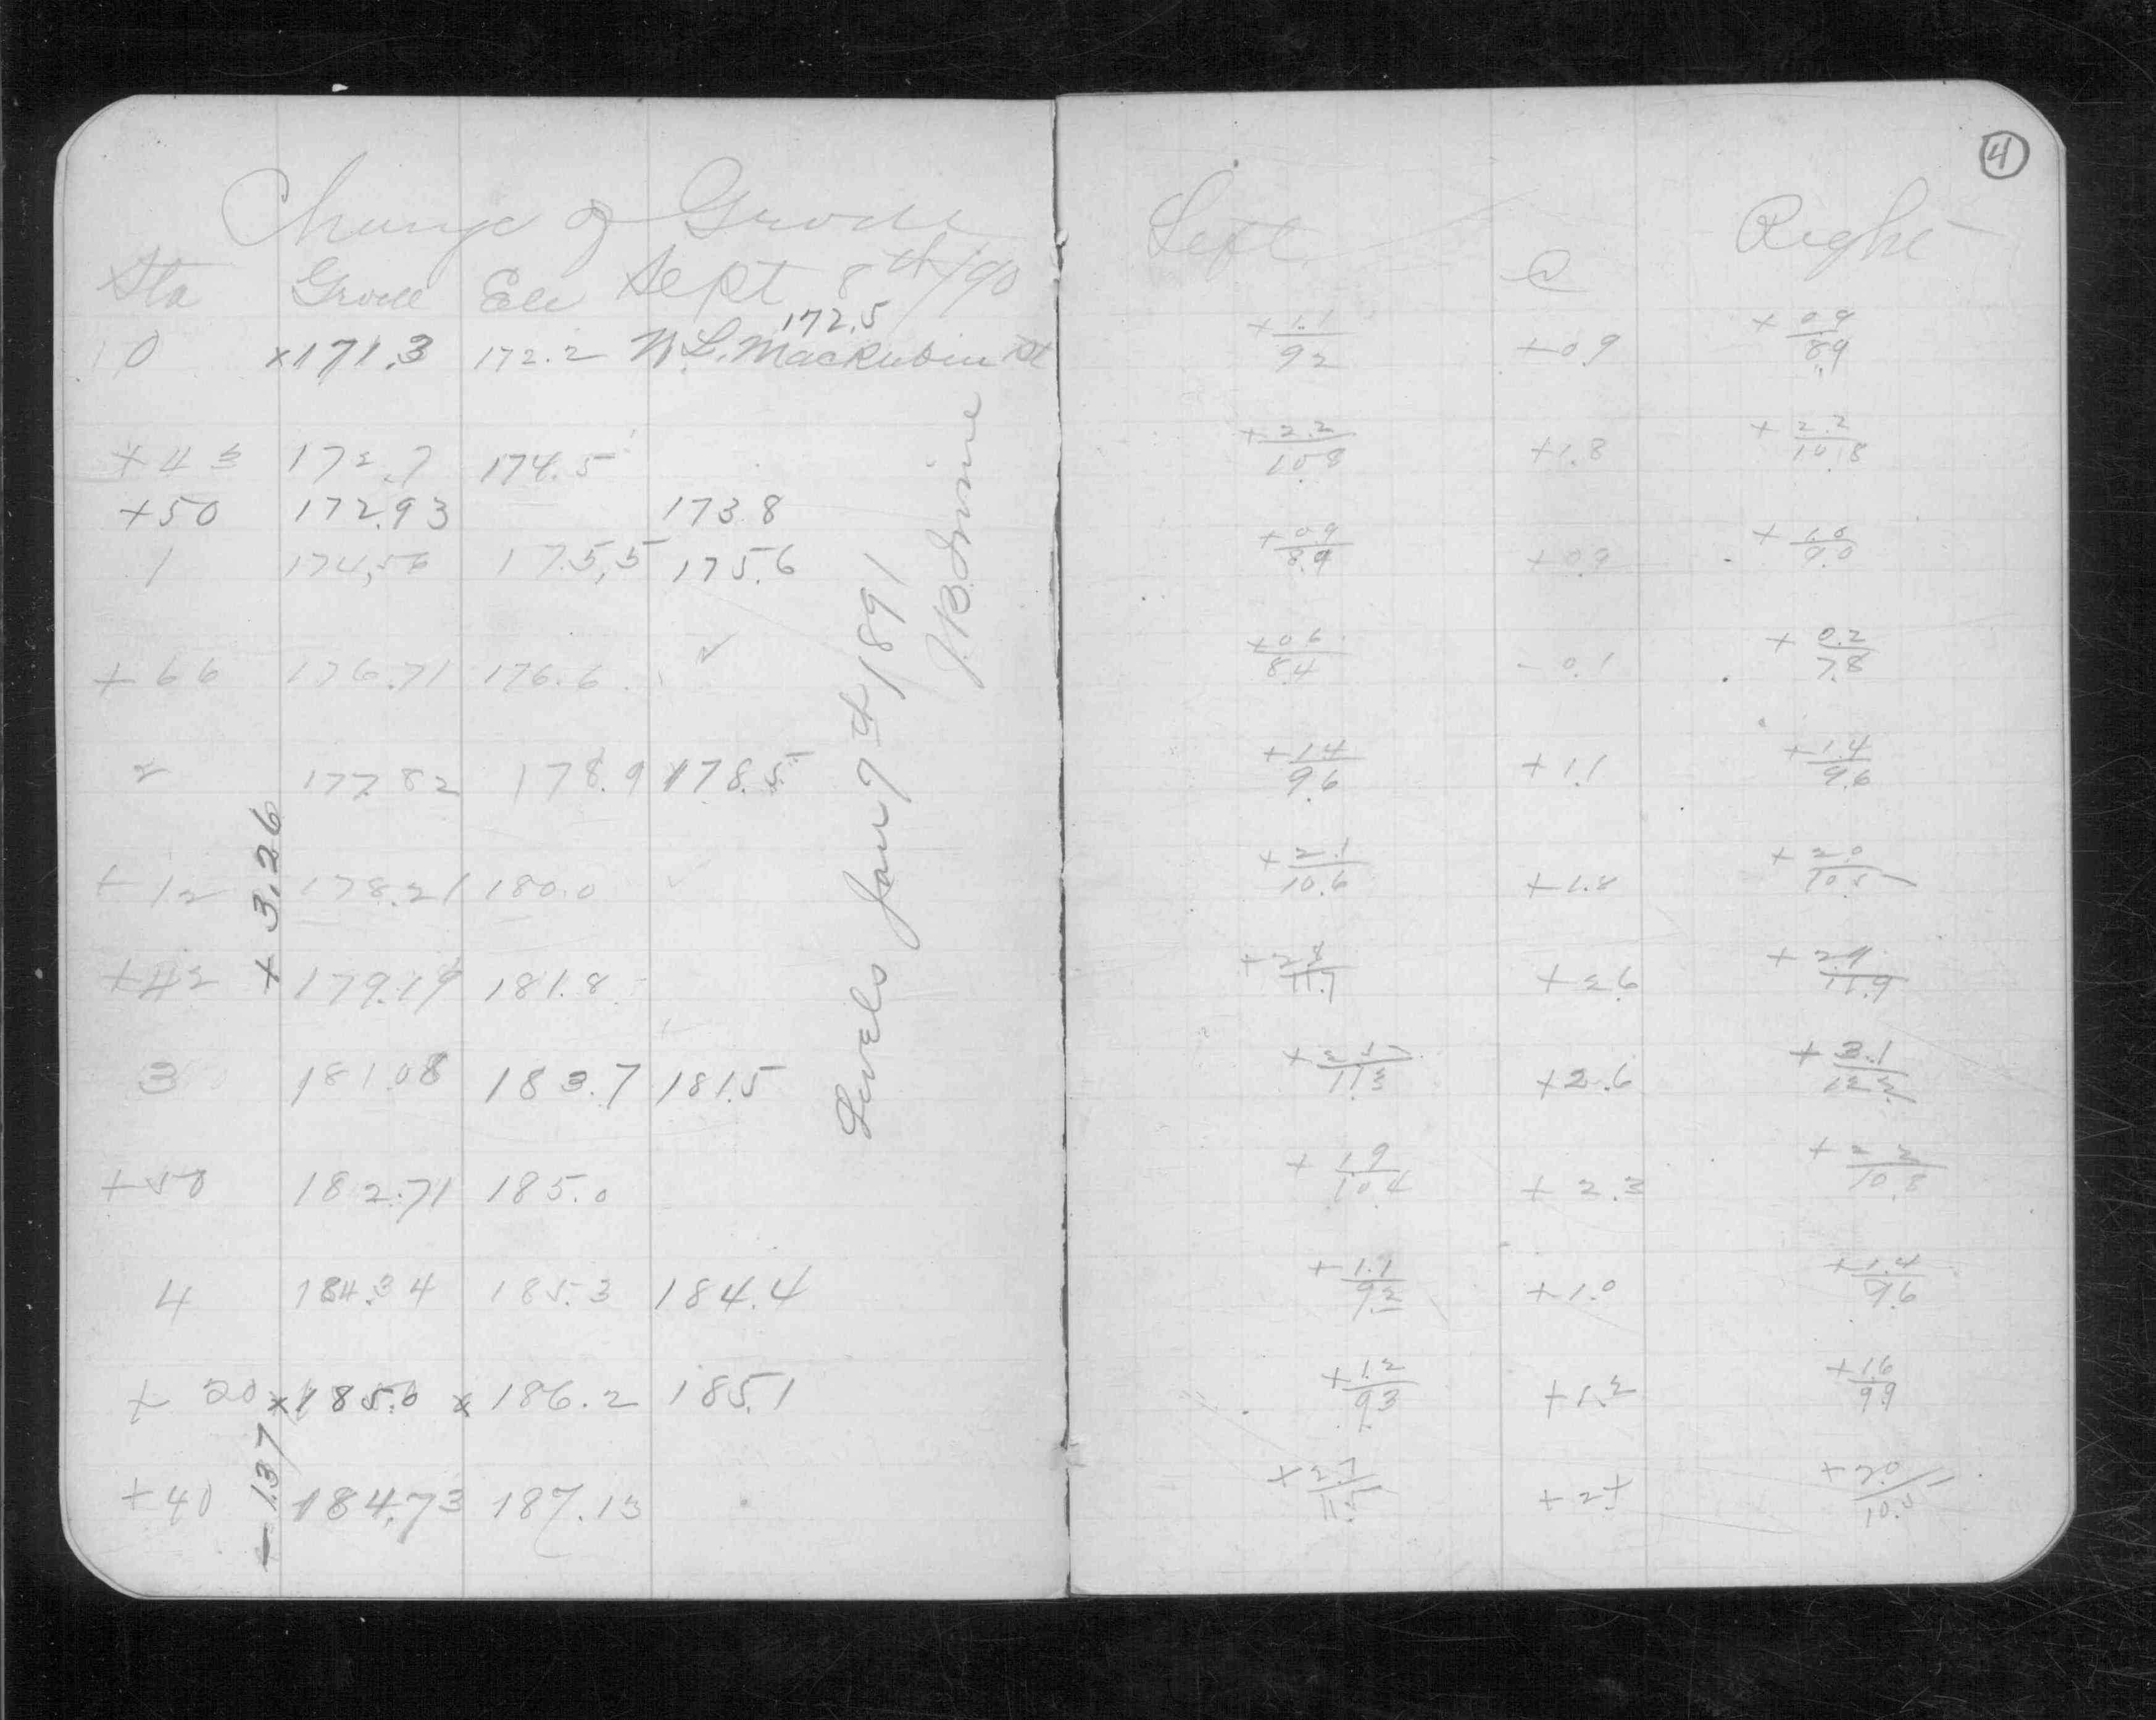 Change of Grade
Sta Grade Ele Sept 8th/90
172.5
0 x171.3 172.2 W.L. Mackubin St
+43 172.7 174.5
+50 172.93 173.8
1 174.56 175.5 175.6
+66 176.71 176.6 ✓
2 177.82 178.9 178.5
+12 178.21 180.0 ✓
+42 179.19 181.8
3 181.08 183.7 181.5
+50 182.71 185.0
4 184.34 185.3 184.4
+20 x185.0 x 186.2 185.1
+40 184.73 187.13
+3.26
-1.37
Levels Jan 7th 1891
J.B. Irvine
4
Left C Right
+1.1/9.2 +0.9 +0.9/8.9
+2.2/10.8 +1.8 +2.2/10.8
+0.9/8.9 +0.9 +1.0/9.0
+0.6/8.4 -0.1 +0.2/7.8
+1.4/9.6 +1.1 +1.4/9.6
+2.1/10.6 +1.8 +2.0/10.5
+2.8/11.7 +2.6 +2.9/11.9
+2.5/11.3 +2.6 +3.1/12.2
+1.9/10.4 +2.3 +2.2/10.8
+1.1/9.2 +1.0 +1.4/9.6
+1.2/9.3 +1.2 +1.6/9.9
+2.7/11.5 +2.4 +2.0/10.5